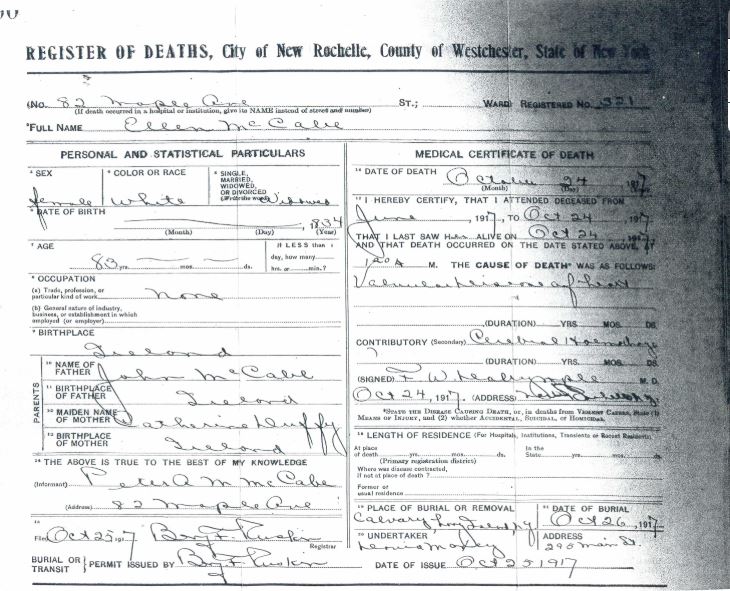 REGISTER OF DEATHS, City of New Rochelle, County of Westchester, State of New York
(No. 82 Maple Ave ST.; WARD) REGISTERED No. 321
(If death occurred in a hospital or institution, give its NAME instead of street and number)
FULL NAME Ellen McCabe
PERSONAL AND STATISTICAL PARTICULARS
SEX
female
COLOR OR RACE
White
SINGLE, MARRIED, WIDOWED, OR DIVORCED
(Write the word) Widowed
DATE OF BIRTH
, 1834
(Month) (Day) (Year)
AGE
83 yrs. — mos. — ds.
If LESS than 1 day, how many hrs. or min.?
OCCUPATION
(a) Trade, profession, or particular kind of work None
(b) General nature of industry, business, or establishment in which employed (or employer)
BIRTHPLACE
Ireland
PARENTS
10 NAME OF FATHER John McCabe
11 BIRTHPLACE OF FATHER Ireland
12 MAIDEN NAME OF MOTHER Catherine Duffy
13 BIRTHPLACE OF MOTHER Ireland
14 THE ABOVE IS TRUE TO THE BEST OF MY KNOWLEDGE
(Informant) Peter A. M McCabe
(Address) 82 Maple Ave
Filed Oct 25 1917
Registrar
BURIAL OR TRANSIT } PERMIT ISSUED BY
MEDICAL CERTIFICATE OF DEATH
DATE OF DEATH
October 24 1917
(Month) (Day)
I HEREBY CERTIFY, THAT I ATTENDED DECEASED FROM
June, 1917, TO Oct 24 1917
THAT I LAST SAW Her ALIVE ON Oct 24 1917
AND THAT DEATH OCCURRED ON THE DATE STATED ABOVE, AT
M. THE CAUSE OF DEATH* WAS AS FOLLOWS:
Valvular disease of heart
(DURATION) YRS. MOS. DS.
CONTRIBUTORY (Secondary) Cerebral Hemorrhage
(DURATION) YRS. MOS. DS.
(SIGNED) M. D.
Oct 24, 1917. (ADDRESS)
*STATE THE DISEASE CAUSING DEATH, or, in deaths from VIOLENT CAUSES, State (1) MEANS OF INJURY, and (2) whether ACCIDENTAL, SUICIDAL, or HOMICIDAL.
LENGTH OF RESIDENCE (For Hospitals, Institutions, Transients or Recent Residents)
At place of death yrs. mos. ds. In the State yrs. mos. ds.
(Primary registration district)
Where was disease contracted, if not at place of death?
Former or usual residence
PLACE OF BURIAL OR REMOVAL
Calvary Long Island NY
DATE OF BURIAL
Oct 26, 1917
UNDERTAKER
ADDRESS
295 Main St.
DATE OF ISSUE Oct 25 1917